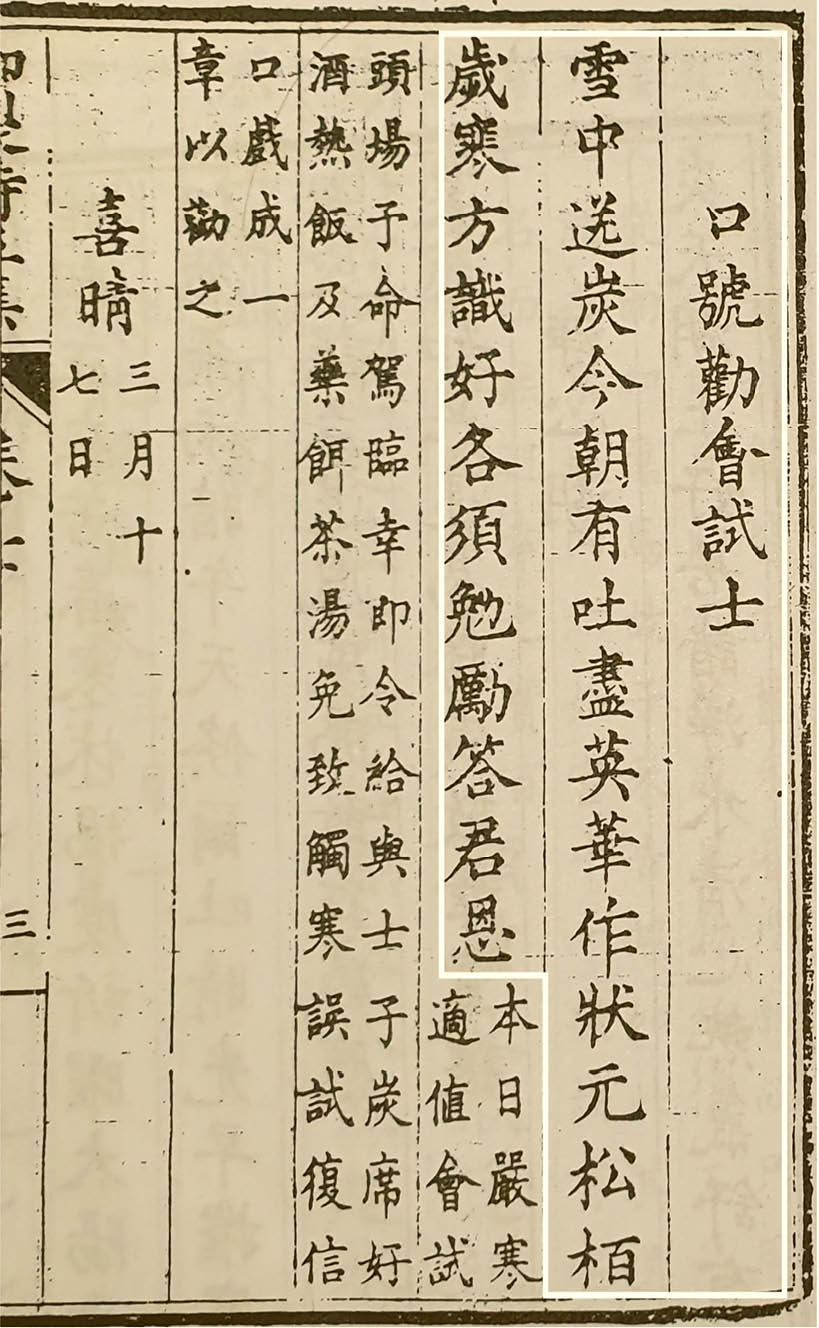 口號勸會試士
雪中送炭今朝有吐盡英華作狀元松栢
歲寒方識好各須勉勵答君恩
本日嚴寒
適值會試
頭場予命駕臨幸即令給與士子炭席好
酒熱飯及藥餌茶湯免致觸寒誤試復信
口戲成一
章以勸之
喜晴
三月十
七日
三